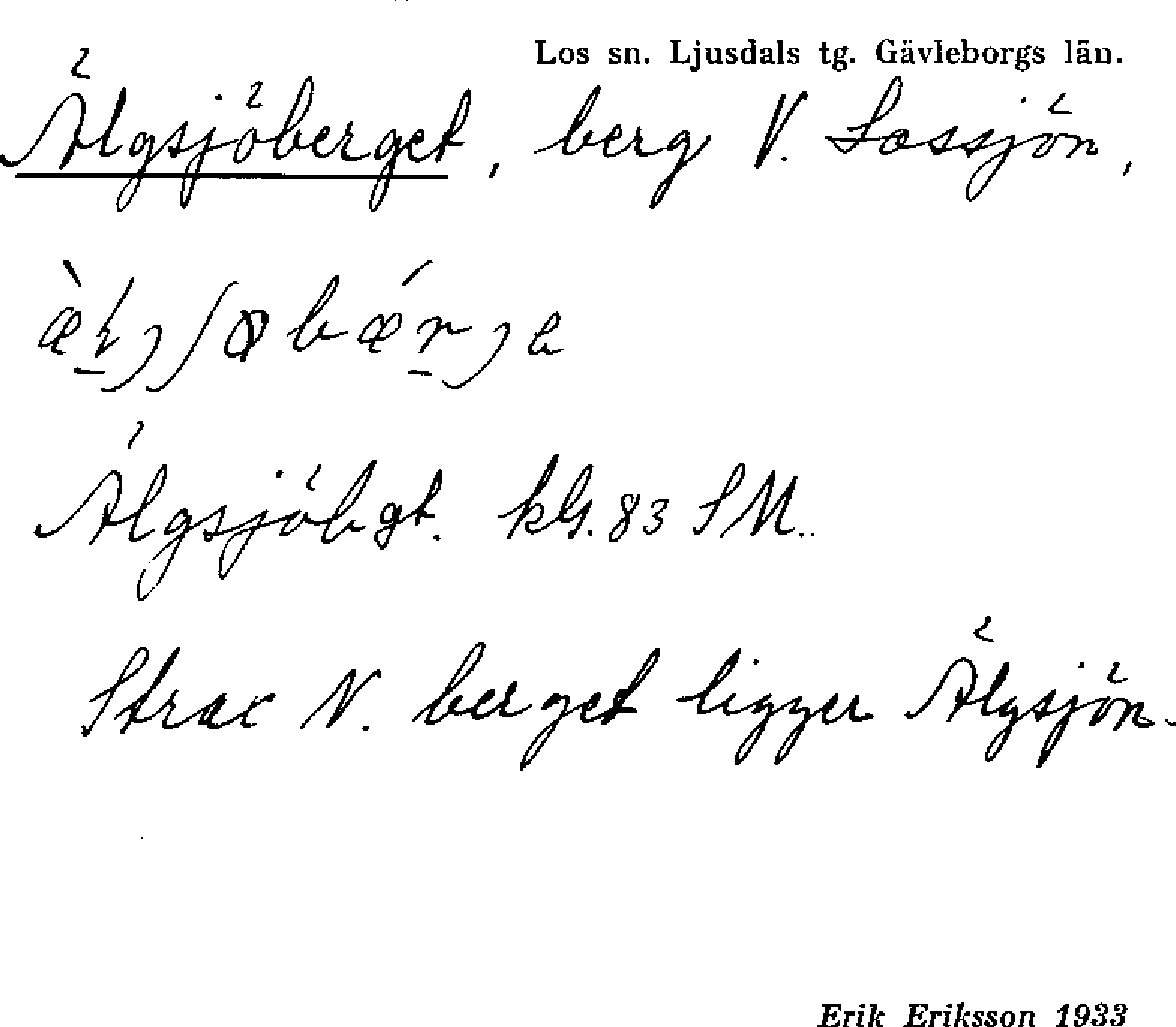 Los sn. Ljusdals tg. Gävleborgs län.
Älgsjöberget, berg V. Lossjön,
Älgsjöbgt. kbl. 83 SM.
Strax N. berget ligger Älgsjön.
Erik Eriksson 1933